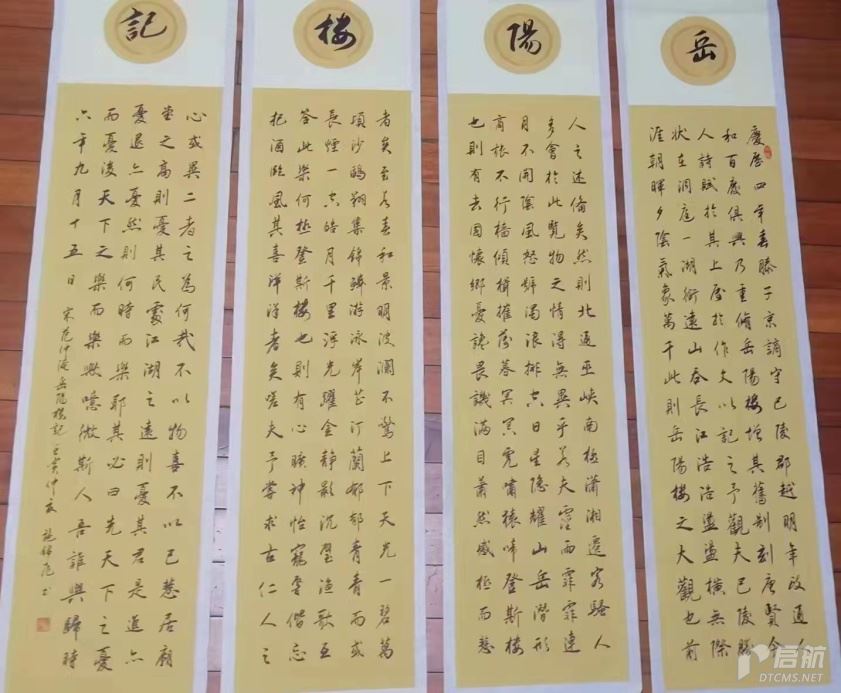 岳
慶曆四年春滕子京謫守巴陵郡越明年政通人
和百廢俱興乃重脩岳陽樓增其舊制刻唐賢今
人詩賦於其上屬於作文以記之予觀夫巴陵勝
狀在洞庭一湖銜遠山吞長江浩浩盪盪橫無際
涯朝暉夕陰氣象萬千此則岳陽樓之大觀也前
陽
人之述備矣然則北通巫峽南極瀟湘遷客騷人
多會於此覽物之情得無異乎若夫霪雨霏霏連
月不開陰風怒號濁浪排空日星隱耀山岳潛形
商旅不行檣傾楫摧薄暮冥冥虎嘯猿啼登斯樓
也則有去國懷鄉憂讒畏譏滿目蕭然感極而悲
樓
者矣至若春和景明波瀾不驚上下天光一碧萬
頃沙鷗翔集錦鱗游泳岸芷汀蘭郁郁青青而或
長煙一空皓月千里浮光躍金靜影沉璧漁歌互
答此樂何極登斯樓也則有心曠神怡寵辱偕忘
把酒臨風其喜洋洋者矣嗟夫予嘗求古仁人之
記
心或異二者之為何哉不以物喜不以己悲居廟
堂之高則憂其民處江湖之遠則憂其君是進亦
憂退亦憂然則何時而樂耶其必曰先天下之憂
而憂後天下之樂而樂歟噫微斯人吾誰與歸時
六年九月十五日
宋范仲淹岳陽樓記壬寅仲夏施錦書
启航
DTCMS.NET